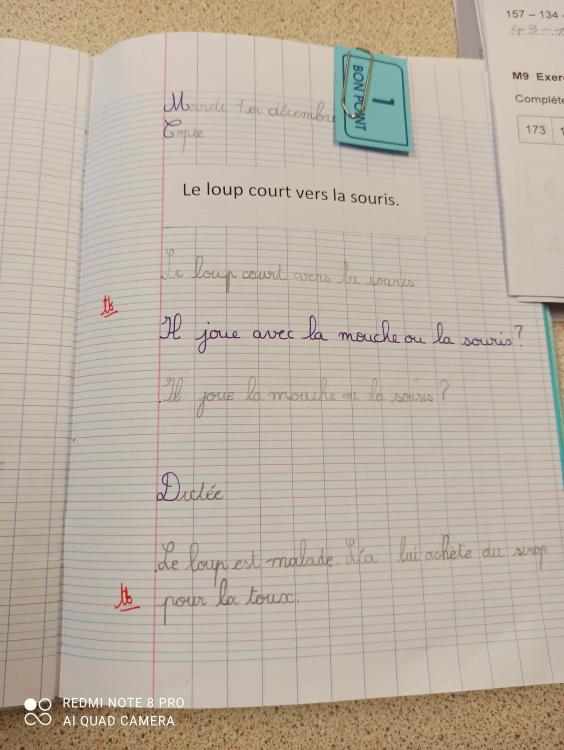 157 – 134 –
43 –
M9 Exer
Complète
173 1
1
BON POINT
Mardi 1er décembre
Copie
Le loup court vers la souris.
Le loup court vers la souris
tb
Il joue avec la mouche ou la souris ?
Il joue la mouche ou la souris ?
Dictée
Le loup est malade. Léa lui achète du sirop
tb pour la toux.
REDMI NOTE 8 PRO
AI QUAD CAMERA